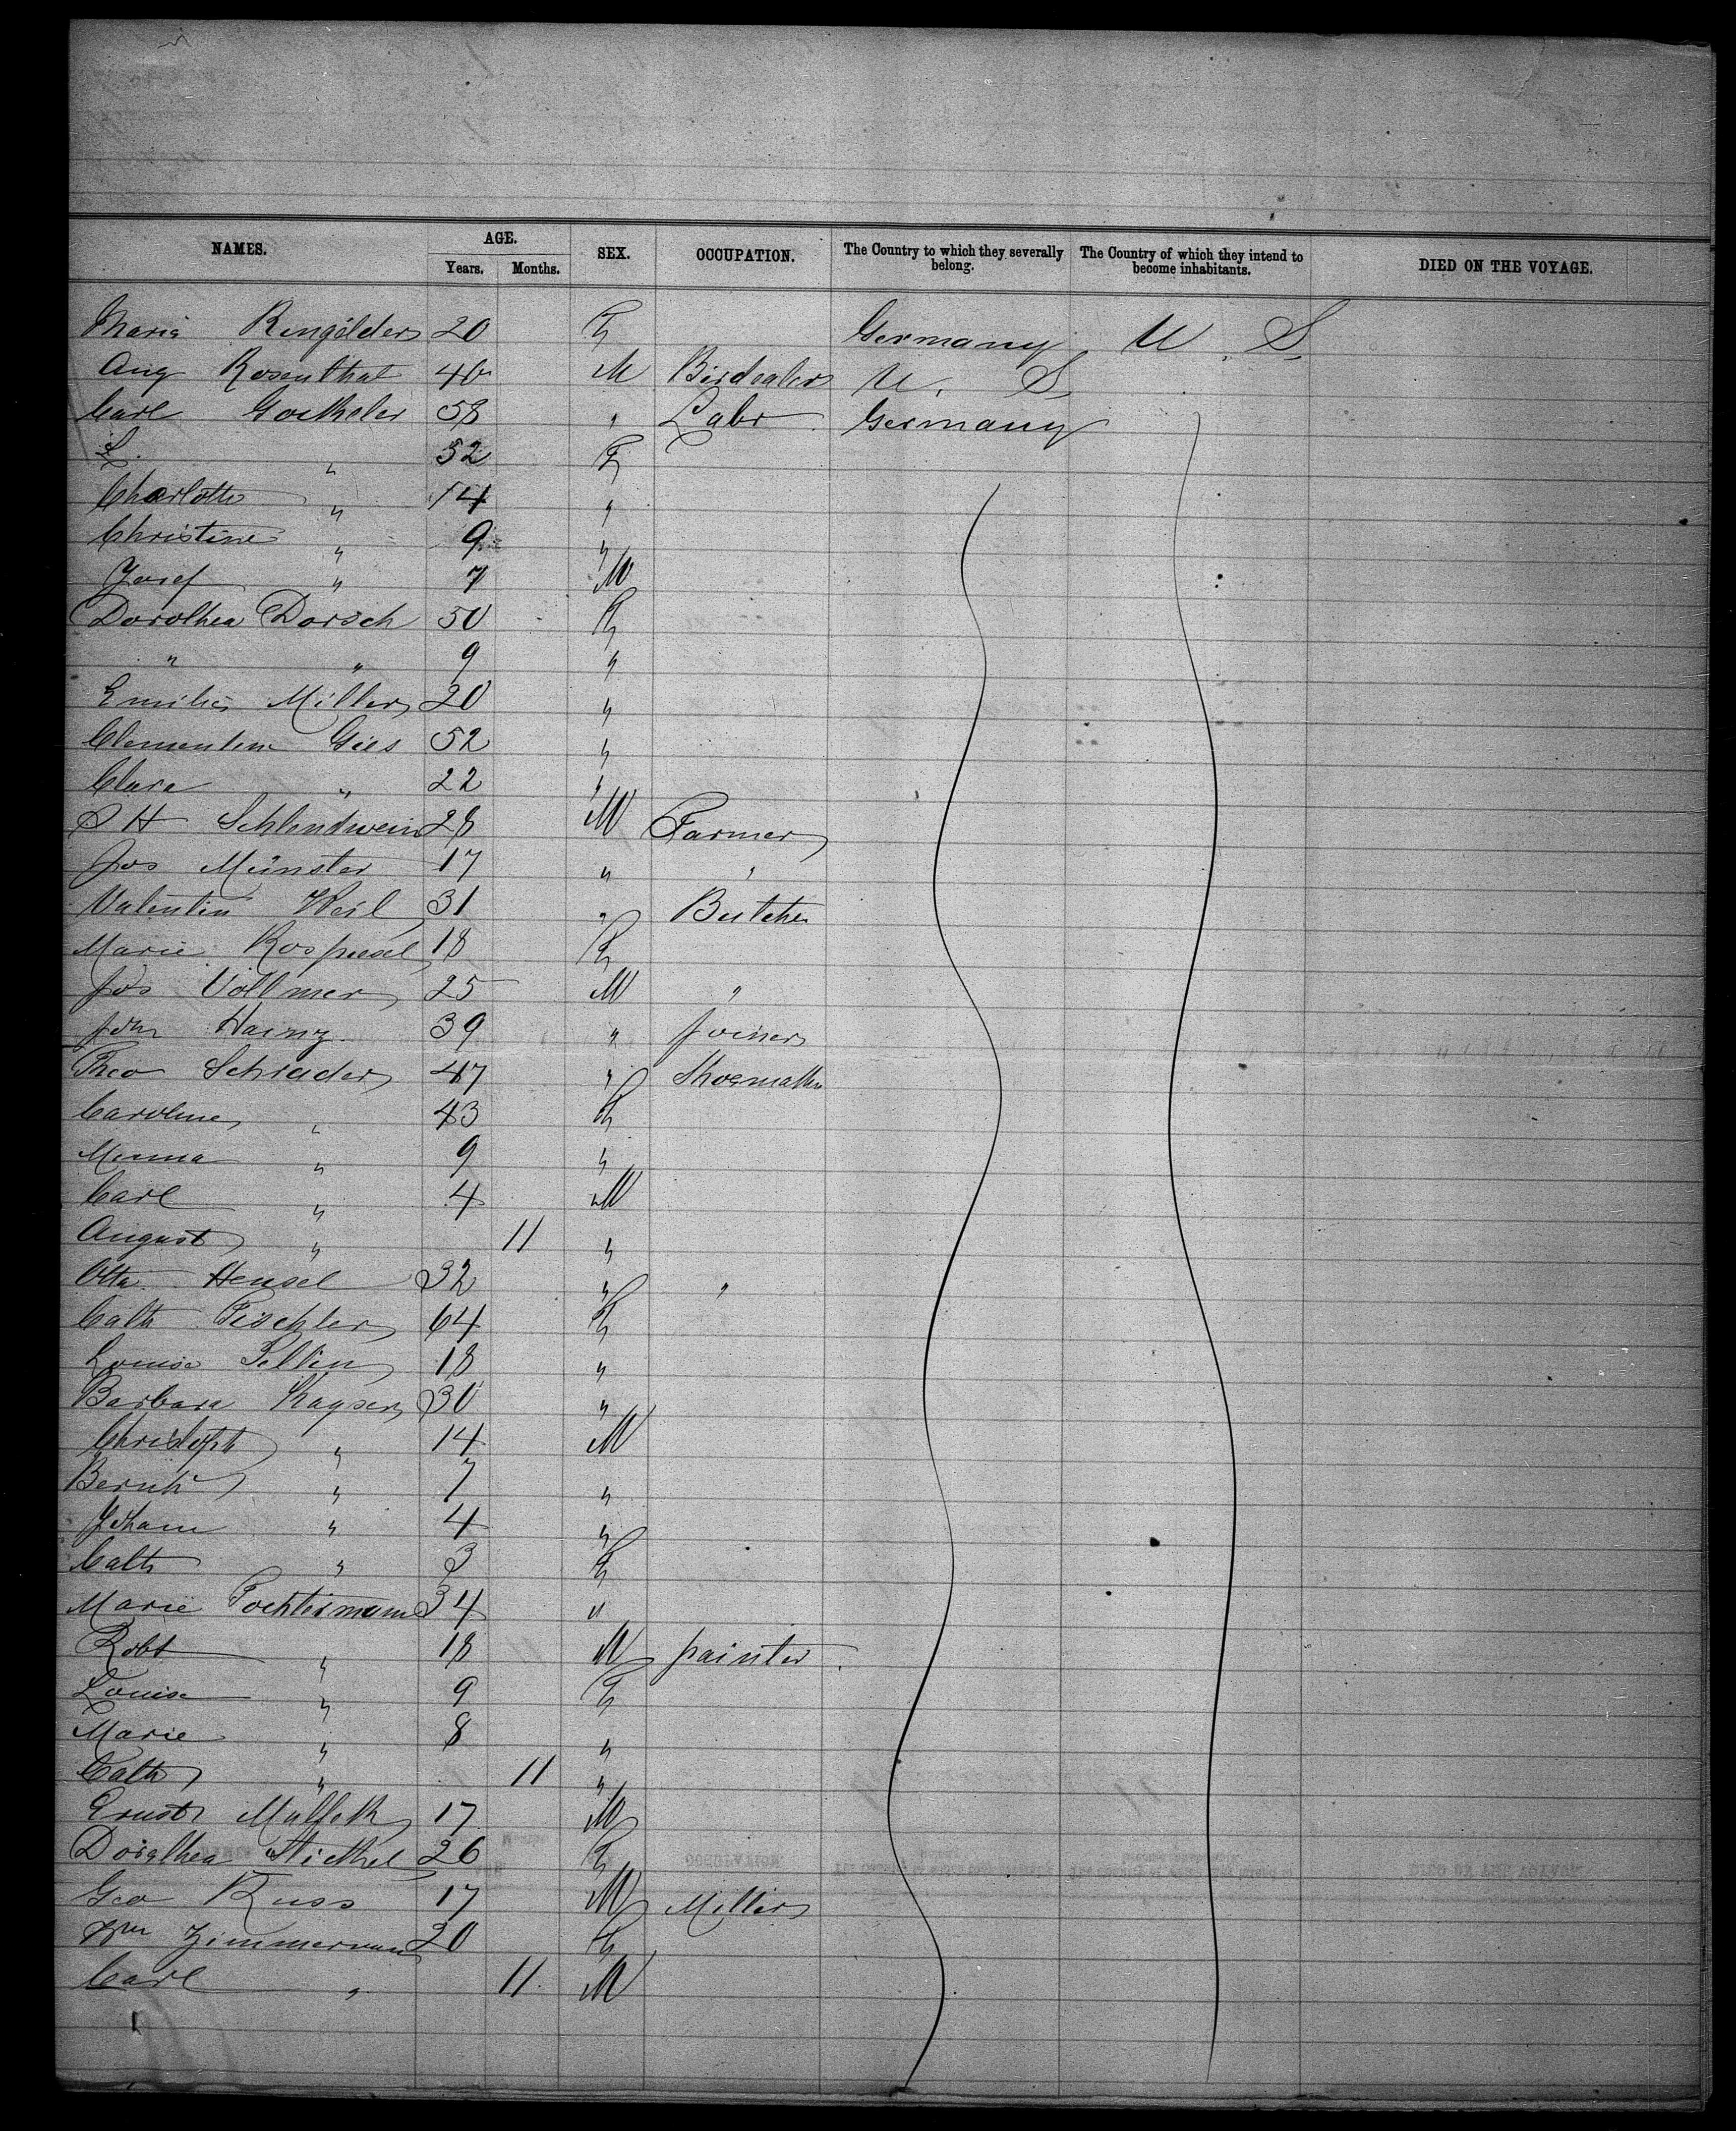 NAMES. AGE. SEX. OCCUPATION. The Country to which they severally belong. The Country of which they intend to become inhabitants. DIED ON THE VOYAGE.
Years. Months.
Maria Rengelder 20 F Germany U. S.
Aug Rosenthal 40 M Birdealer U. S.
Carl Goetheler 58 " Labr Germany
L. " 52 F
Charlotte " 14 "
Christine " 9 "
Josef " 7 M
Dorothea Dorsch 50 F
" " 9 "
Emilie Miller 20 "
Clementine Gies 52 "
Clara " 22 "
H Schlindwein 28 M Farmer
Jos Münster 17 " "
Valentin Weil 31 " Butcher
Marie 18 F
Jos Vollmer 25 M "
Joh Hainz 39 " Joiner
Theo Schrader 47 " Shoemaker
Caroline " 43 F
Minna " 9 "
Carl " 4 M
August " 11 "
Otto Hensel 32 " "
Cath Fischler 64 F
Louise Sellin 18 "
Barbara Kayser 30 "
Christoph " 14 M
Bernh " 7 "
Johann " 4 "
Cath " 3 F
Marie Tochtermann 34 "
Robt " 18 M painter
Louise " 9 F
Marie " 8 "
Cath " 11 "
Ernst 17 M
Dorothea 26 F
Geo Russ 17 M Miller
Wm Zimmermann 20 F
Carl " 11 M